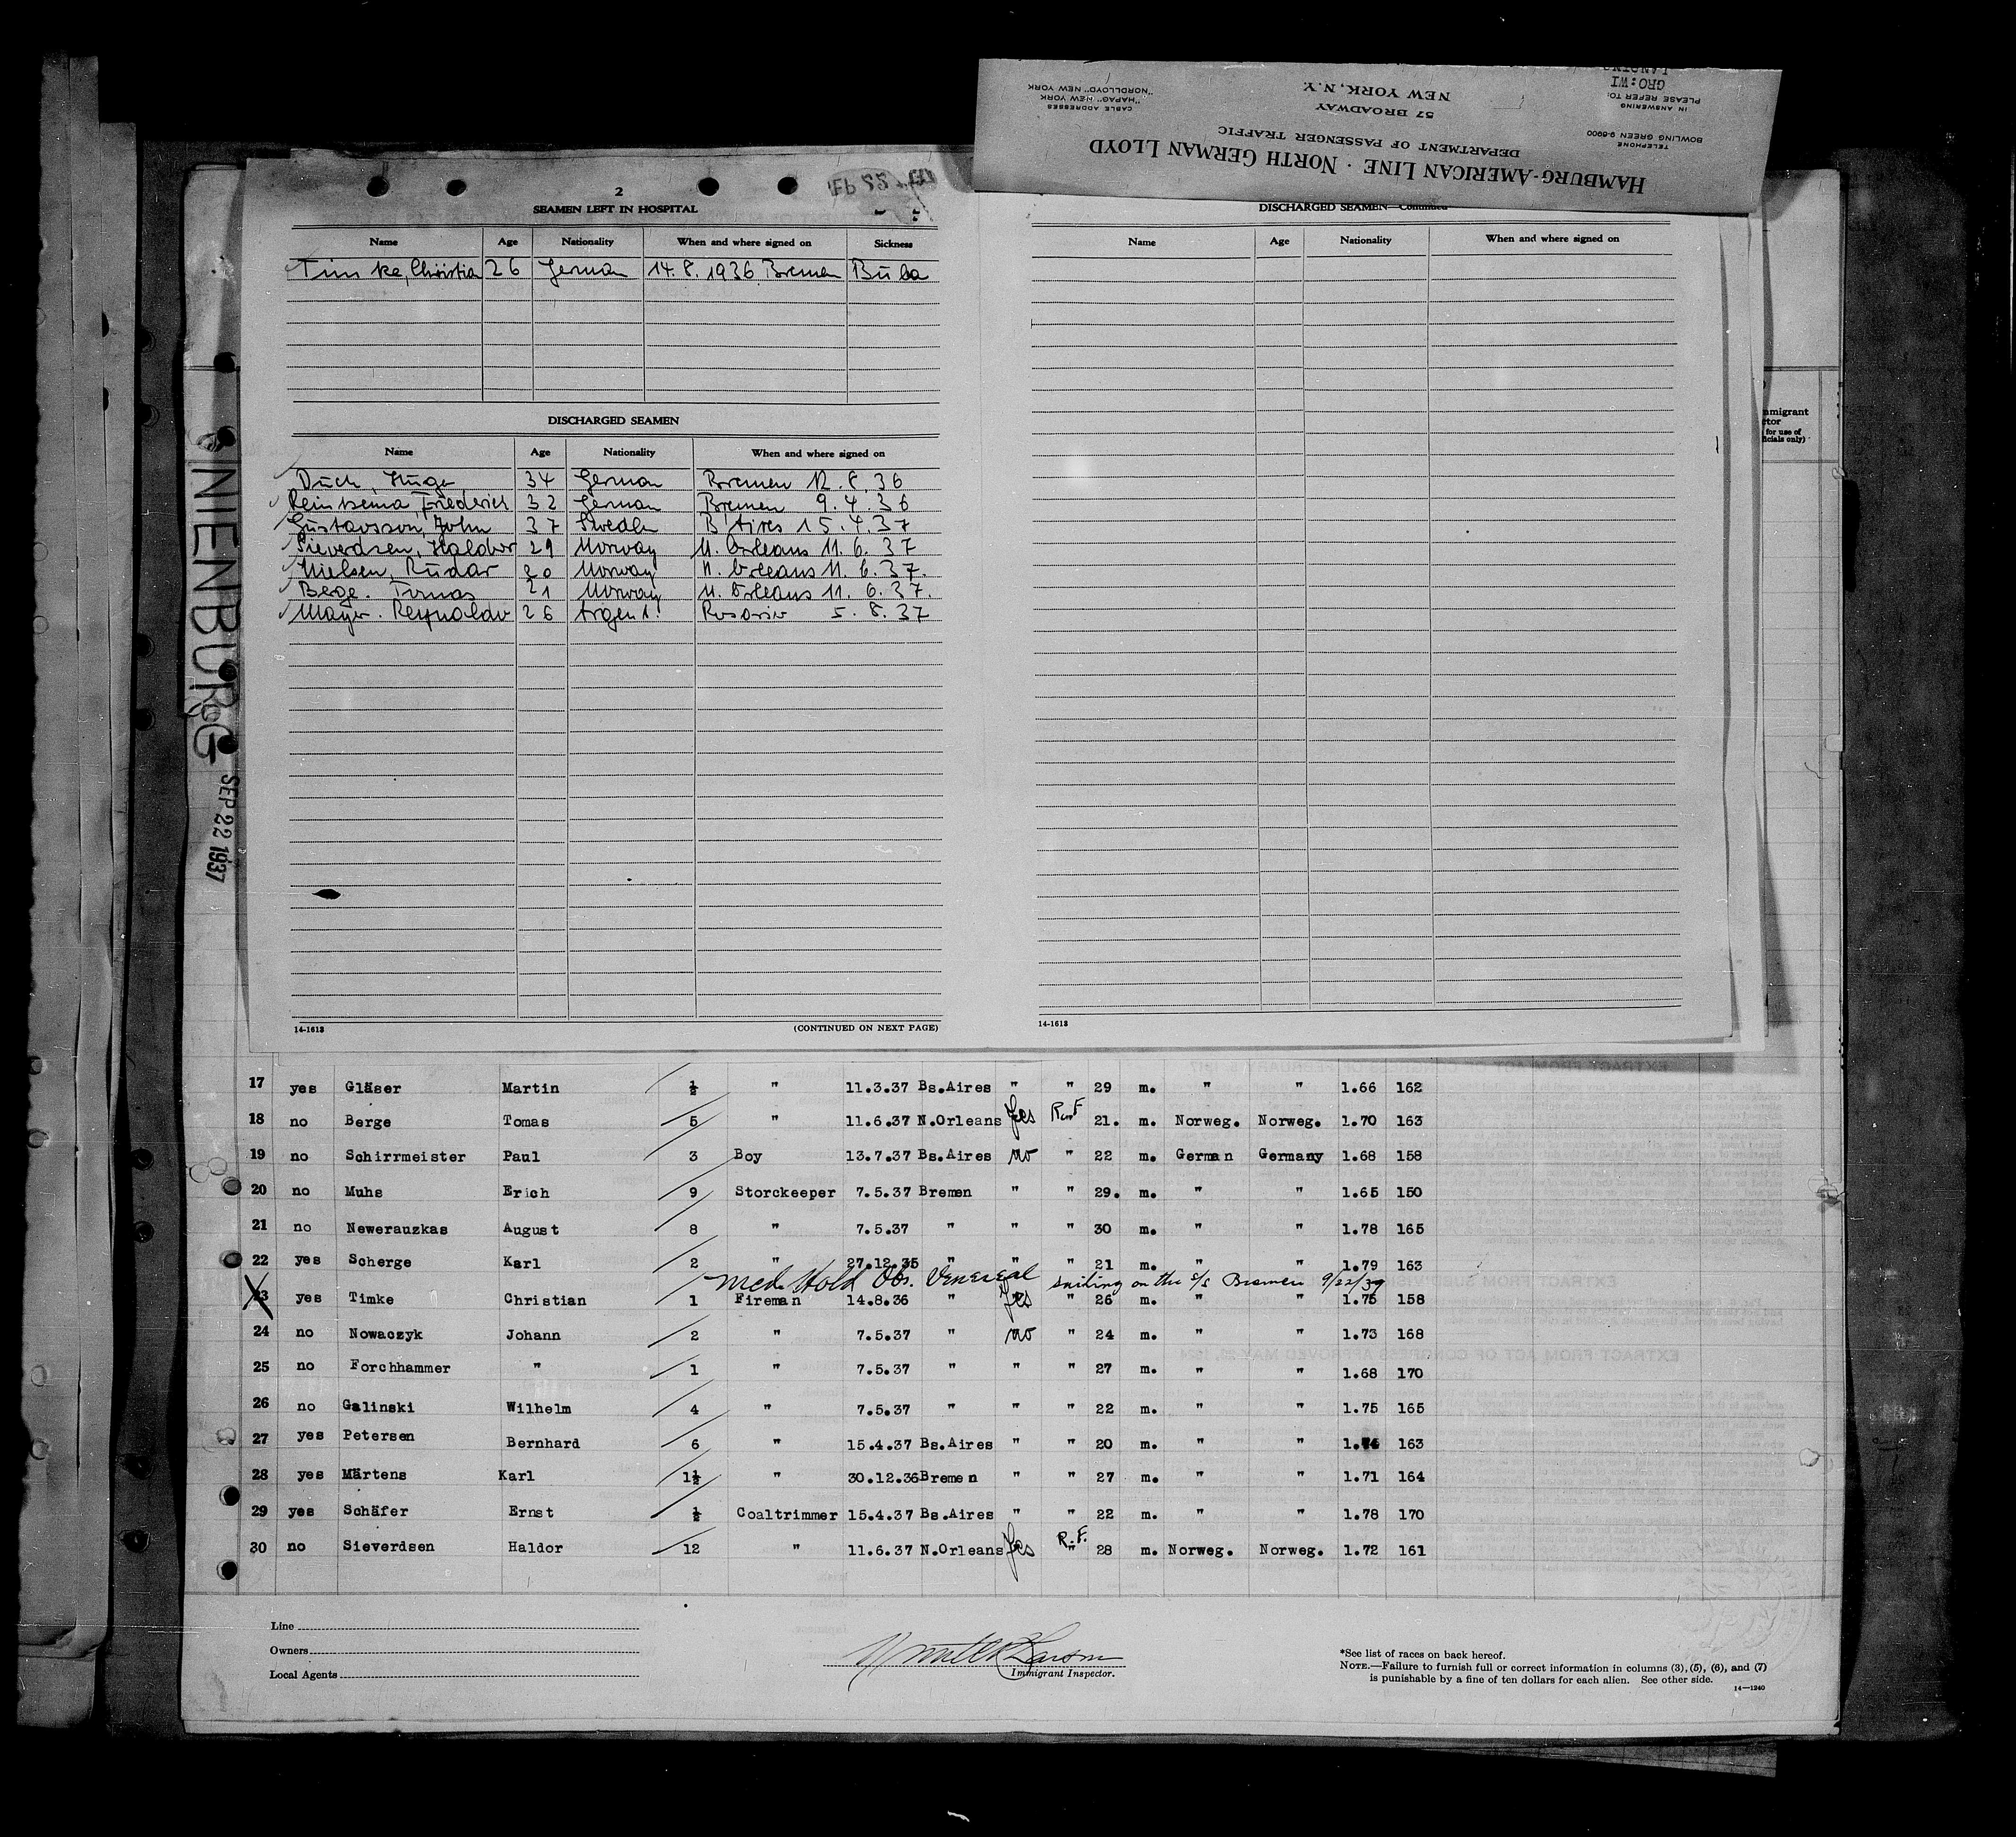 HAMBURG-AMERICAN LINE · NORTH GERMAN LLOYD
DEPARTMENT OF PASSENGER TRAFFIC
57 BROADWAY
NEW YORK, N.Y.
TELEPHONE
BOWLING GREEN 9-6900
IN ANSWERING
PLEASE REFER TO:
GRO:WI
CABLE ADDRESSES
"HAPAG" NEW YORK
"NORDLLOYD" NEW YORK
NIENBURG
SEP 22 1937
2
SEAMEN LEFT IN HOSPITAL
Name Age Nationality When and where signed on Sickness
Timke, Christia 26 German 14. 8. 1936 Bremen
DISCHARGED SEAMEN
Name Age Nationality When and where signed on
34 German Bremen 12. 8. 36
Friederich 32 German Bremen 9. 4. 36
Gustavsson, John 37 Sweden B'Aires 15. 4. 37
Sieverdsen, Haldor 29 Norway N. Orleans 11. 6. 37
Nielsen, 20 Norway N. Orleans 11. 6. 37.
Berge. Tomas 21 Norway N. Orleans 11. 6. 37.
Mayer. Reynaldo 26 Argent. Rosario 5. 8. 37
14-1613 (CONTINUED ON NEXT PAGE)
DISCHARGED SEAMEN—Continued
Name Age Nationality When and where signed on
14-1613
nmigrant
ctor
for use of
ficials only)
17 yes Gläser Martin ½ " 11.3.37 Bs.Aires " " 29 m. " " 1.66 162
18 no Berge Tomas 5 " 11.6.37 N.Orleans yes R.F 21. m. Norweg. Norweg. 1.70 163
19 no Schirrmeister Paul 3 Boy 13.7.37 Bs.Aires no " 22 m. German Germany 1.68 158
20 no Muhs Erich 9 Storckeeper 7.5.37 Bremen " " 29. m. " " 1.65 150
21 no Newerauzkas August 8 " 7.5.37 " " " 30 m. " " 1.78 165
22 yes Scherge Karl 2 " 27.12.35 " " " 21 m. " " 1.79 163
Med. Hold Obs. Venereal sailing on the S/S Bremen 9/22/37
23 yes Timke Christian 1 Fireman 14.8.36 " yes " 26 m. " " 1.75 158
24 no Nowaczyk Johann 2 " 7.5.37 " no " 24 m. " " 1.73 168
25 no Forchhammer " 1 " 7.5.37 " " " 27 m. " " 1.68 170
26 no Galinski Wilhelm 4 " 7.5.37 " " " 22 m. " " 1.75 165
27 yes Petersen Bernhard 6 " 15.4.37 Bs.Aires " " 20 m. " " 163
28 yes Märtens Karl 1½ " 30.12.36 Bremen " " 27 m. " " 1.71 164
29 yes Schäfer Ernst ½ Coaltrimmer 15.4.37 Bs.Aires " " 22 m. " " 1.78 170
30 no Sieverdsen Haldor 12 " 11.6.37 N.Orleans yes R.F. " 28 m. Norweg. Norweg. 1.72 161
Line
Owners
Local Agents
Immigrant Inspector.
*See list of races on back hereof.
NOTE.—Failure to furnish full or correct information in columns (3), (5), (6), and (7)
is punishable by a fine of ten dollars for each alien. See other side.
14—1240